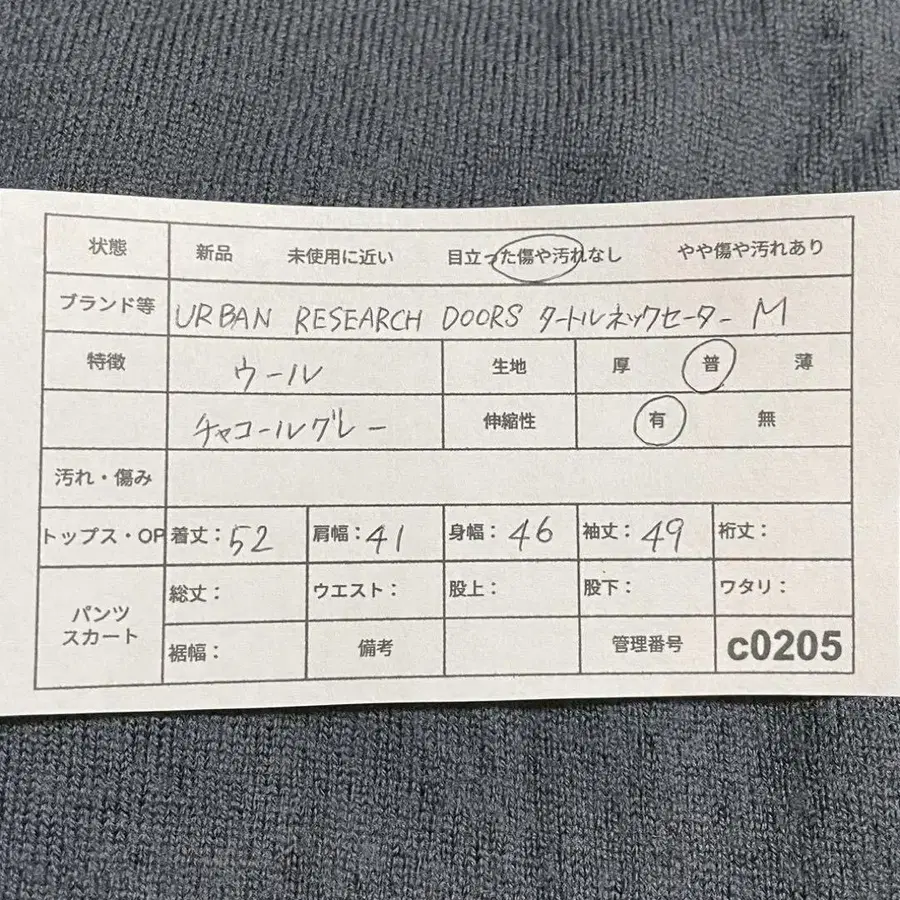 状態 新品 未使用に近い 目立った傷や汚れなし やや傷や汚れあり
ブランド等 URBAN RESEARCH DOORS タートルネックセーター M
特徴 ウール 生地 厚 普 薄
チャコールグレー 伸縮性 有 無
汚れ・傷み
トップス・OP 着丈：52 肩幅：41 身幅：46 袖丈：49 裄丈：
パンツ
スカート
総丈： ウエスト： 股上： 股下： ワタリ：
裾幅： 備考 管理番号 c0205